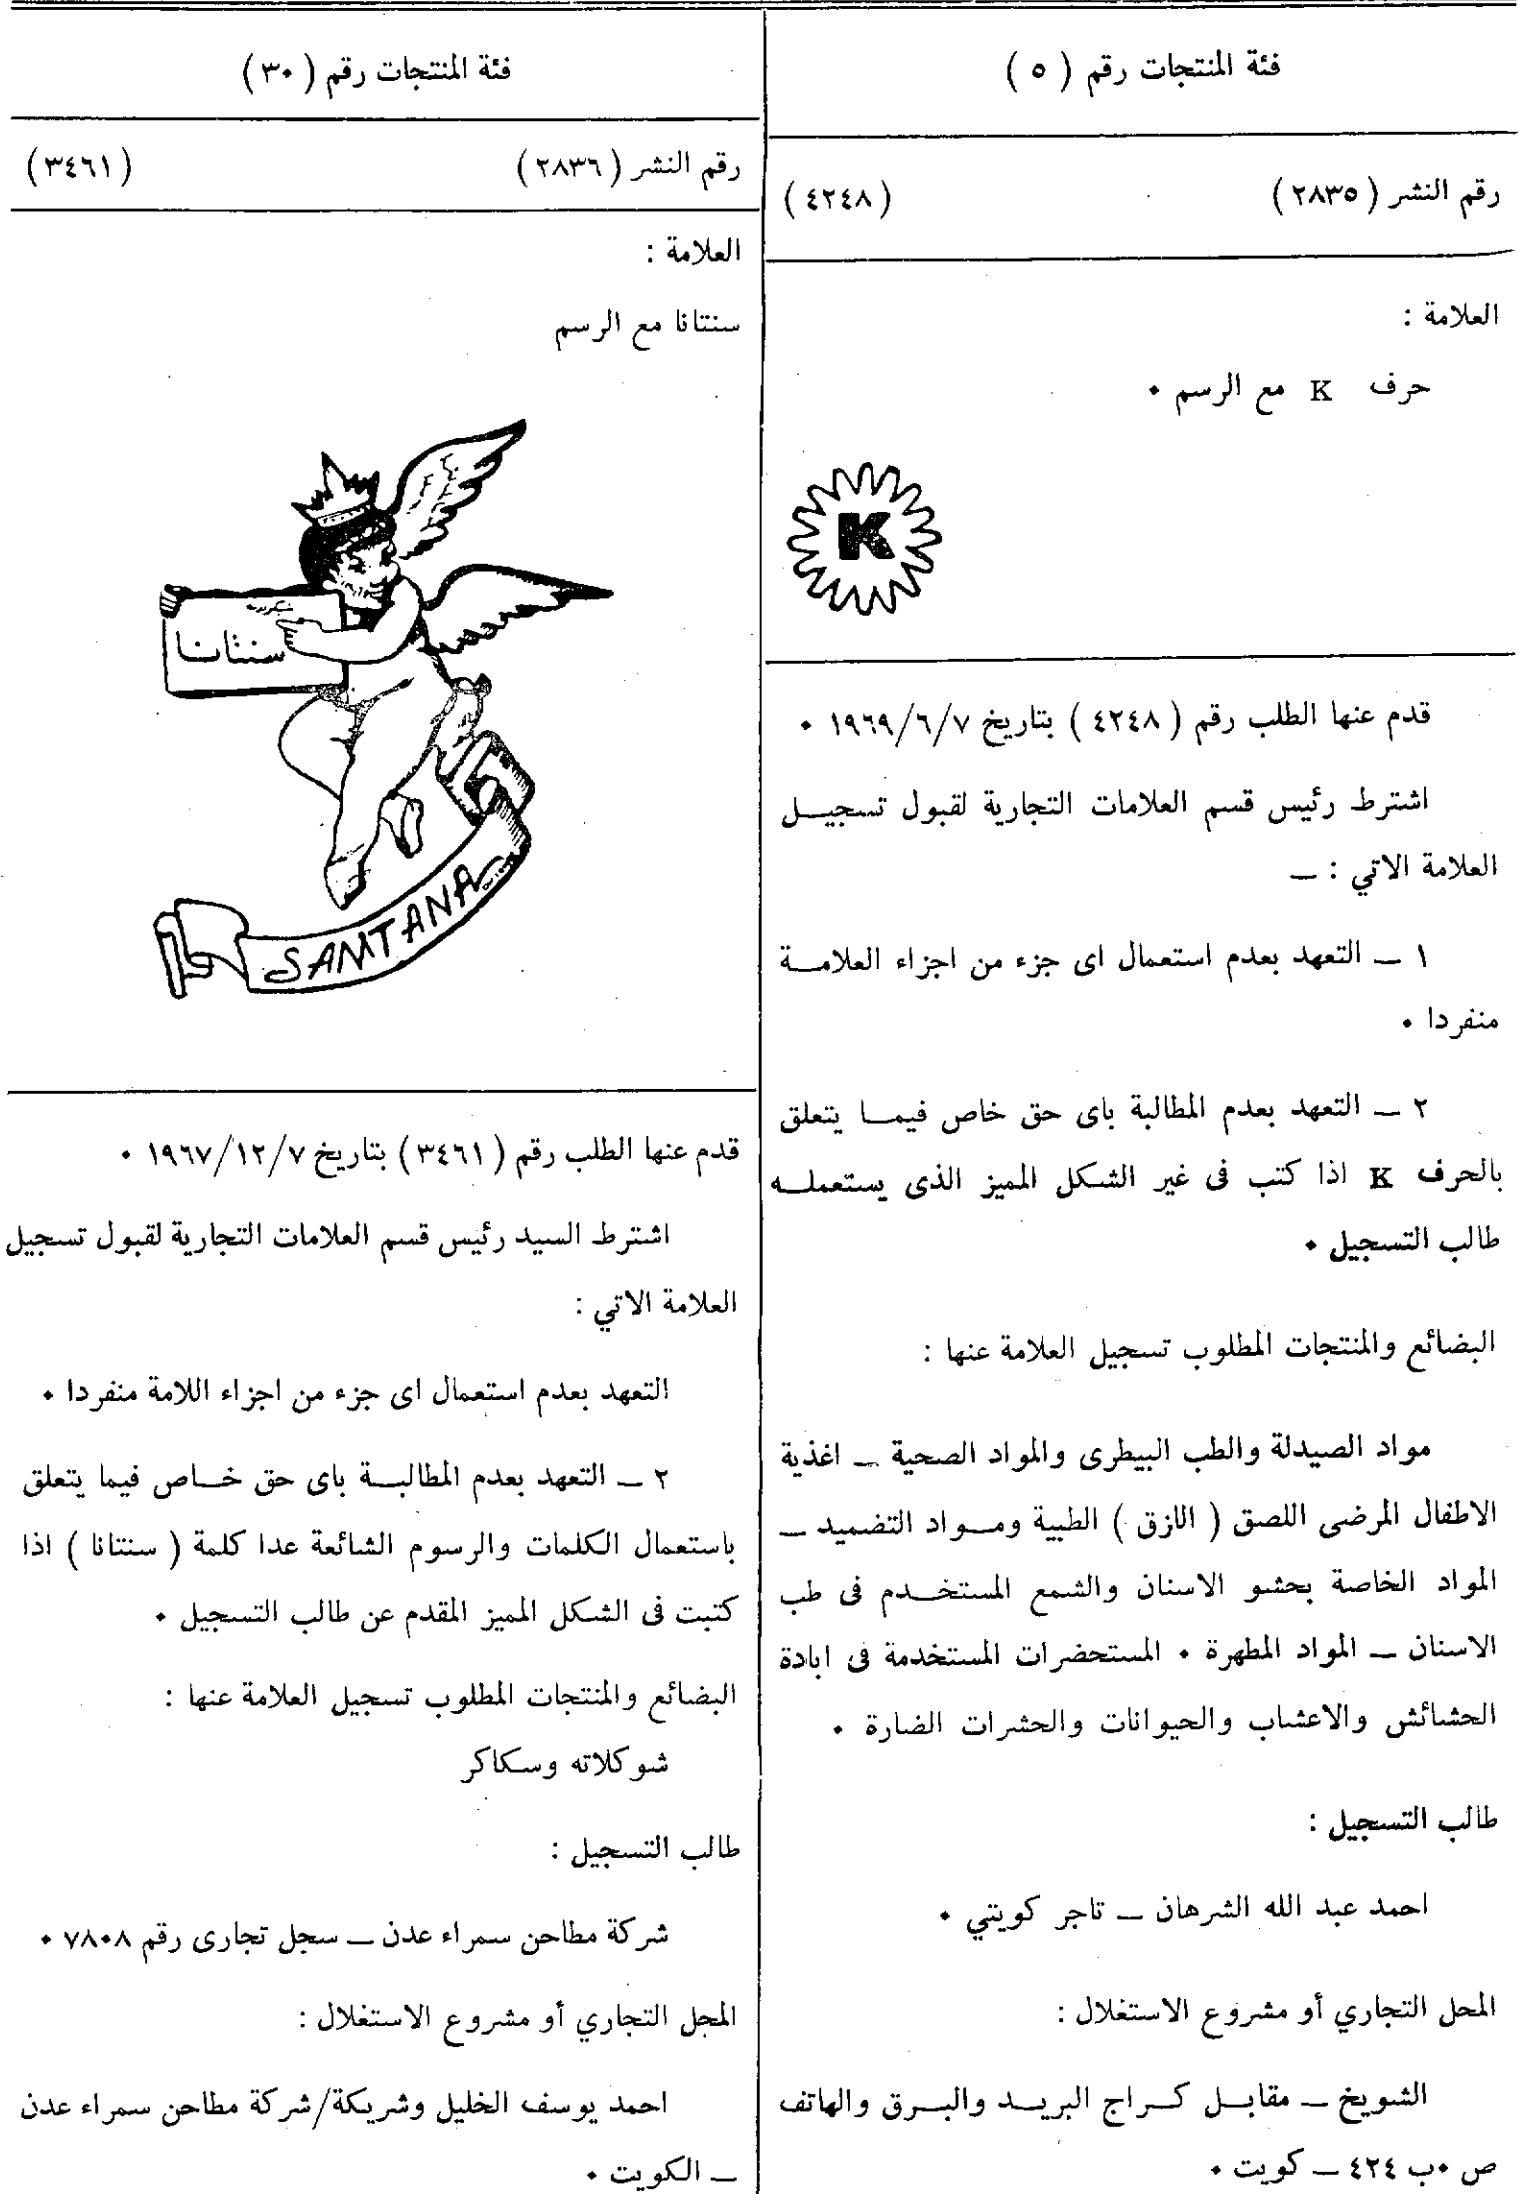 فئة المنتجات رقم ( ٥ )
رقم النشر ( ٢٨٣٥ ) ( ٤٢٤٨ )
العلامة :
حرف K مع الرسم ٠
K
قدم عنها الطلب رقم ( ٤٢٤٨ ) بتاريخ ١٩٦٩/٦/٧ ٠
اشترط رئيس قسم العلامات التجارية لقبول تسجيـــل
العلامة الاتي : ــ
١ ــ التعهد بعدم استعمال اى جزء من اجزاء العلامـــة
منفردا ٠
٢ ــ التعهد بعدم المطالبة باى حق خاص فيمـــا يتعلق
بالحرف K اذا كتب فى غير الشكل المميز الذى يستعملـــه
طالب التسجيل ٠
البضائع والمنتجات المطلوب تسجيل العلامة عنها :
مواد الصيدلة والطب البيطرى والمواد الصحية ــ اغذية
الاطفال المرضى اللصق ( الازق ) الطبية ومـــواد التضميد ــ
المواد الخاصة بحشو الاسنان والشمع المستخـــدم فى طب
الاسنان ــ المواد المطهرة ٠ المستحضرات المستخدمة فى ابادة
الحشائش والاعشاب والحيوانات والحشرات الضارة ٠
طالب التسجيل :
احمد عبد الله الشرهان ــ تاجر كويتي ٠
المحل التجاري أو مشروع الاستغلال :
الشويخ ــ مقابـــل كـــراج البريـــد والبـــرق والهاتف
ص ٠ب ٤٢٤ ــ كويت ٠
فئة المنتجات رقم ( ٣٠ )
رقم النشر ( ٢٨٣٦ ) ( ٣٤٦١ )
العلامة :
سنتانا مع الرسم
سنتانا
SAMTANA
قدم عنها الطلب رقم ( ٣٤٦١ ) بتاريخ ١٩٦٧/١٢/٧ ٠
اشترط السيد رئيس قسم العلامات التجارية لقبول تسجيل
العلامة الاتي :
التعهد بعدم استعمال اى جزء من اجزاء اللامة منفردا ٠
٢ ــ التعهد بعدم المطالبـــة باى حق خـــاص فيما يتعلق
باستعمال الكلمات والرسوم الشائعة عدا كلمة ( سنتانا ) اذا
كتبت فى الشكل المميز المقدم عن طالب التسجيل ٠
البضائع والمنتجات المطلوب تسجيل العلامة عنها :
شوكلاته وسكاكر
طالب التسجيل :
شركة مطاحن سمراء عدن ــ سجل تجارى رقم ٧٨٠٨ ٠
المحل التجاري أو مشروع الاستغلال :
احمد يوسف الخليل وشريكة/شركة مطاحن سمراء عدن
ــ الكويت ٠